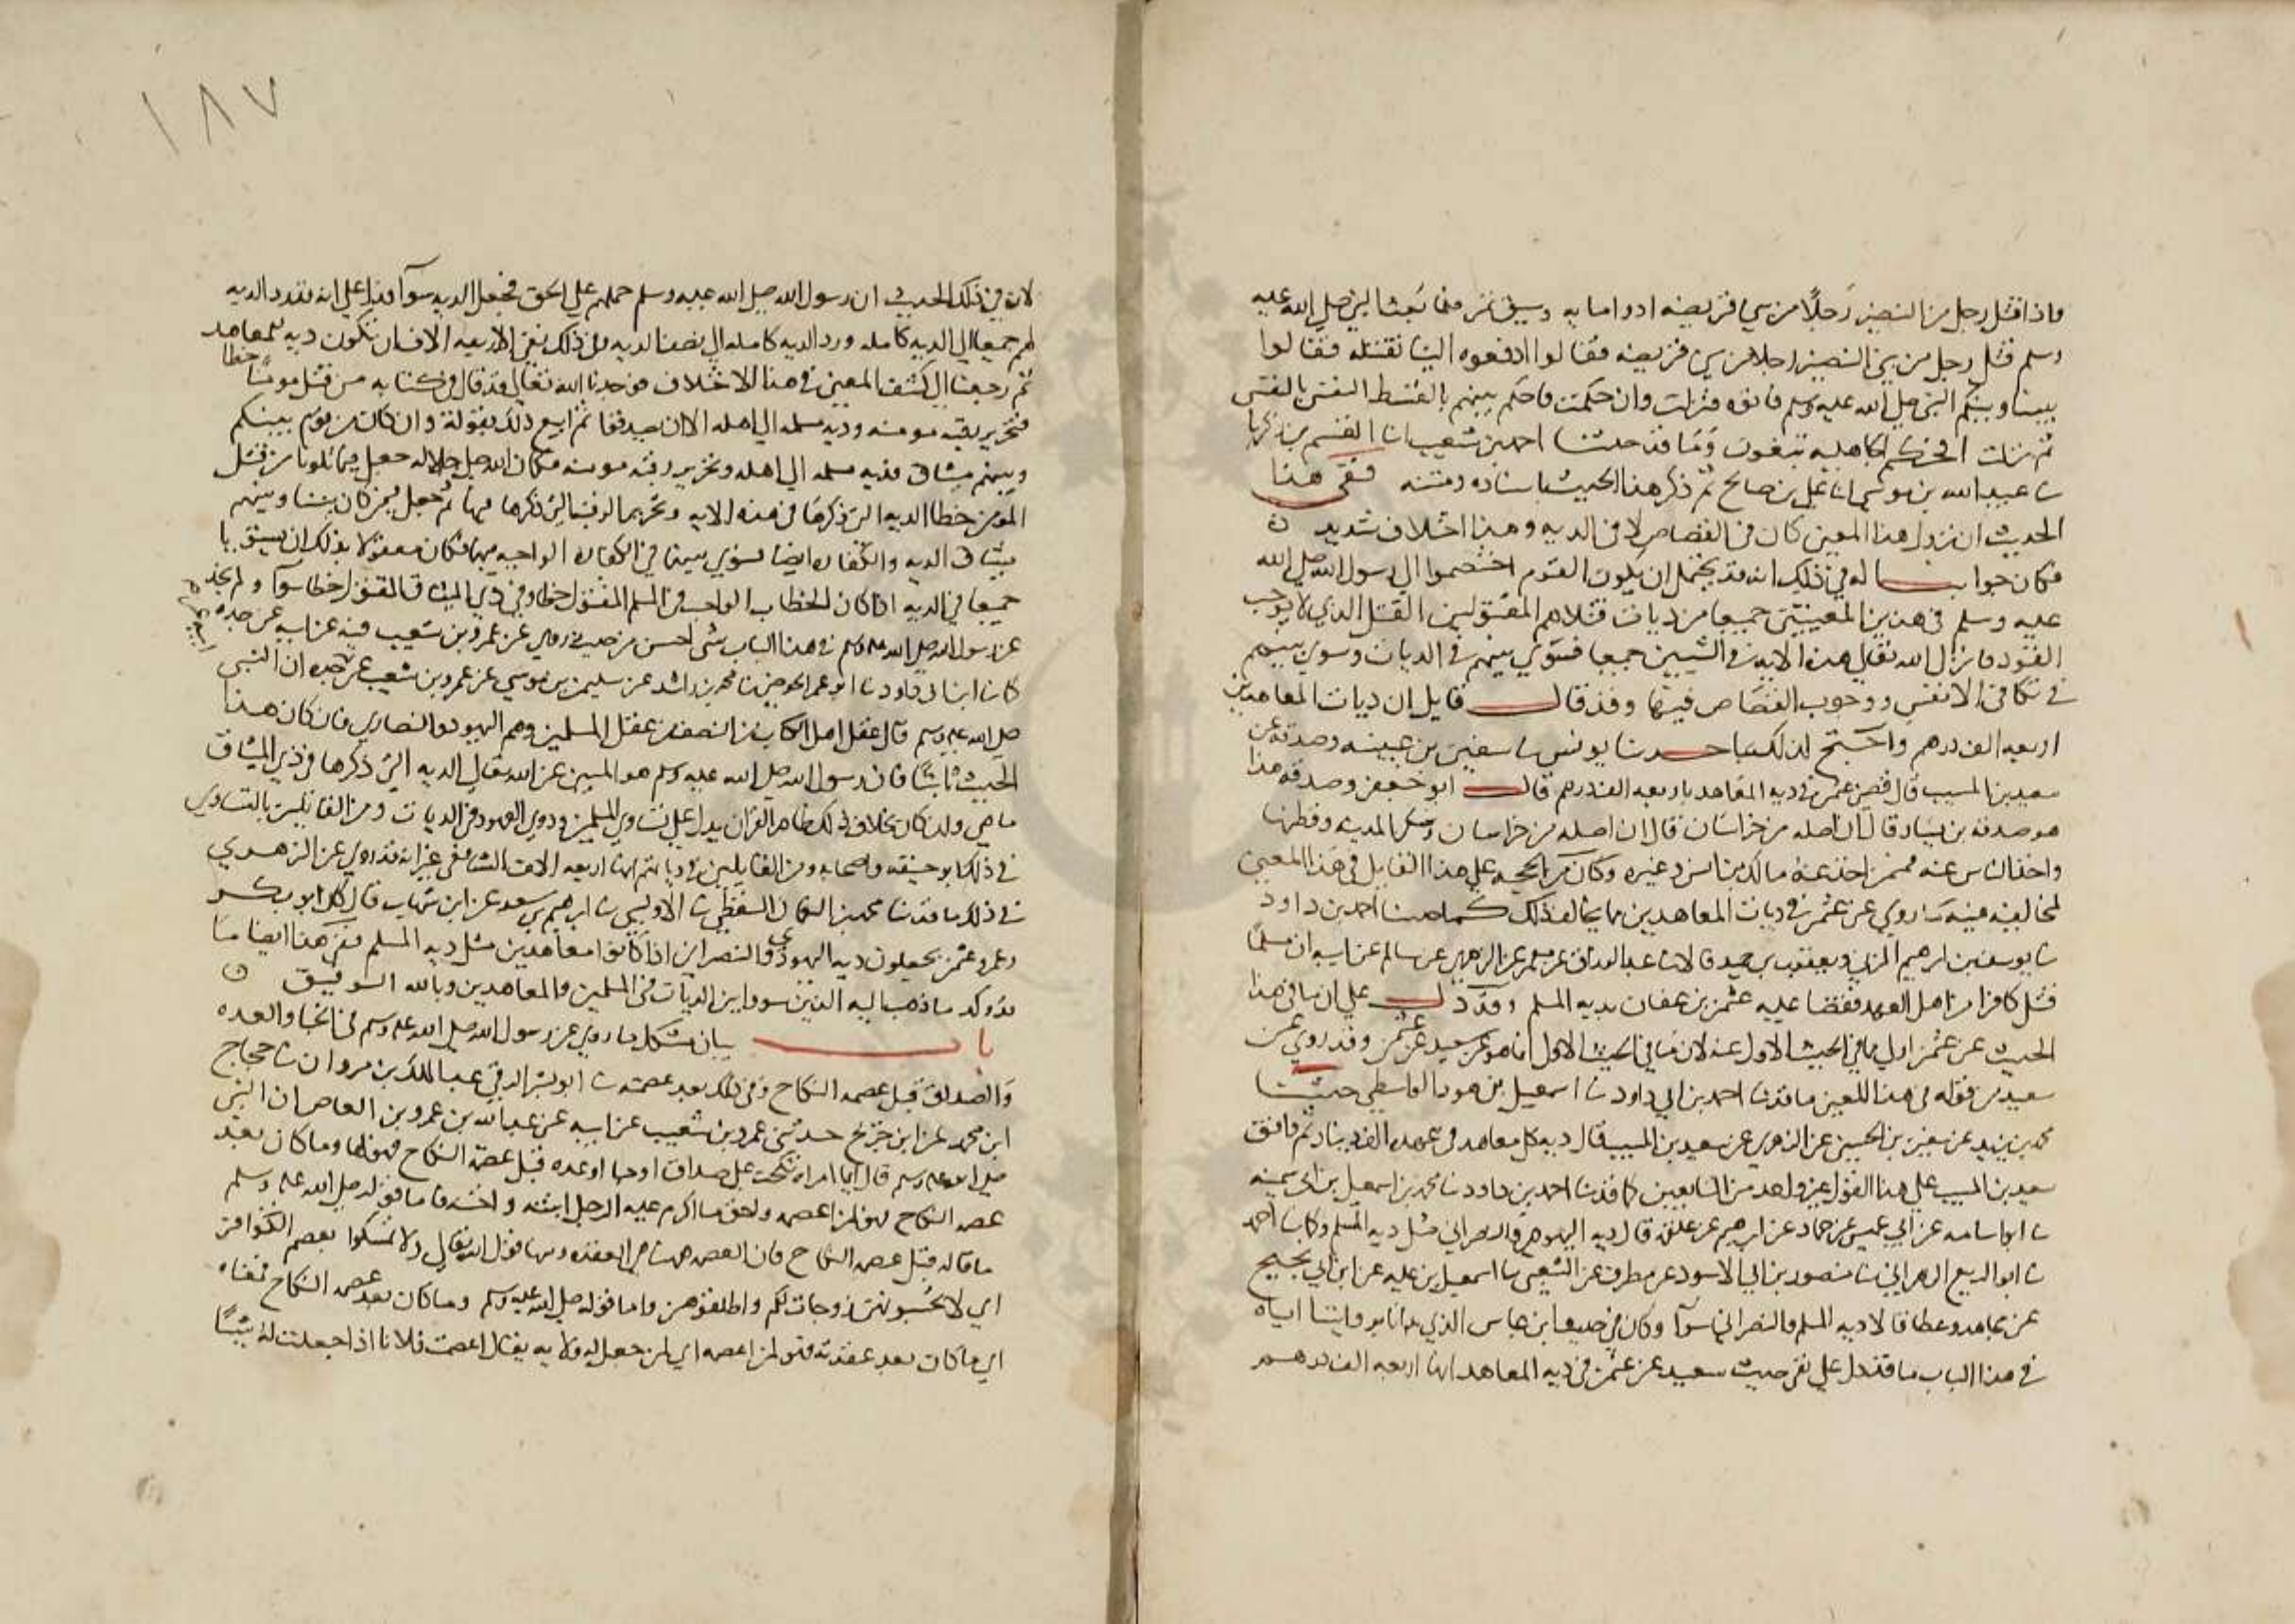 واذا قتل رجل من النضير رجلا من بني قريظه ادوا مايه وسق تمر فلما بعث النبي صلى الله عليه
وسلم قتل رجل من بني النضير رجلا من بني قريظه فقالوا ادفعوه الينا نقتله فقالوا
بيننا وبينكم النبي صلى الله عليه وسلم فاتوه فنزلت وان حكمت فاحكم بينهم بالقسط النفس بالنفس
ثم نزلت افحكم الجاهليه يبغون وما قد حدثنا احمد بن شعيب انا القسم بن زكريا
نا عبيد الله بن موسى انا علي بن صالح ثم ذكر هذا الحديث باسناده ومتنه ففي هذا
الحديث ان نزول هذا المعنى كان في القصاص لا في الديه وهذا اختلاف شديد
فكان جوابنا له في ذلك انه قد يحتمل ان يكون القوم اختصموا الى رسول الله صلى الله
عليه وسلم في هذين المعنيين جميعا من ديات قتلاهم المقتولين القتل الذي لا يوجب
القود فانزل الله تعالى هذه الايه في الشيين جميعا فسوى بينهم في الديات وسوى بينهم
في تكافي الانفس ووجوب القصاص فيها وقد قال قايل ان ديات المعاهدين
اربعه الف درهم واحتج لذلك بما حدثنا يونس نا سفين بن عيينه وصدقه عن
سعيد بن المسيب قال قضى عثمن في ديه المعاهد باربعه الف درهم قال ابو جعفر وصدقه هذا
هو صدقه بن يسار قال ان اصله من خراسان قال ان اصله من خراسان وسكن المدينه وقطنها
واخذ الناس عنه فممن اخذ عنه مالك بن انس وغيره وكان من الحجه على هذا القايل في هذا المعنى
لمخالفيه فيه ما روي عن عثمن في ديات المعاهدين مما يخالف ذلك كما حدثنا احمد بن داود
نا يوسف بن ابرهيم المزني ويعقوب بن حميد قالا نا عبد الرزاق عن معمر عن الزهري عن سالم عن ابيه ان مسلما
قتل كافرا من اهل العهد فقضا عليه عثمن بن عفان بديه المسلم وقد دل على ان ما في هذا
الحديث عن عثمن اولى مما في الحديث الاول عنه لان ما في الحديث الاول انما هو عن سعيد عن عثمن وقد روي عن
سعيد من قوله في هذا المعنى ما قد نا احمد بن ابي داود نا اسمعيل بن هود الواسطي حدثنا
محمد بن يزيد عن سفين بن الحسين عن الزهري عن سعيد بن المسيب قال ديه كل معاهد في عهده الف دينار ثم وافق
سعيد بن المسيب على هذا القول غير واحد من التابعين كما قد نا احمد بن داود نا محمد بن اسمعيل بن ابي سمينه
نا ابو اسامه عن ابي عميس عن حماد عن ابرهيم عن علقمه قال ديه اليهودي والنصراني مثل ديه المسلم وكما نا احمد
نا ابو الربيع الزهراني نا منصور بن ابي الاسود عن مطرف عن الشعبي نا اسمعيل بن عليه عن ابن ابي نجيح
عن مجاهد وعطا قالا ديه المسلم والنصراني سوآ وكان في حديث ابن عباس الذي بدانا بروايتنا اياه
في هذا الباب ما قد دل على نفي حديث سعيد عن عثمن في ديه المعاهد انها اربعه الف درهم
١٨٧
لان في ذلك الحديث ان رسول الله صلى الله عليه وسلم حملهم على الحق فجعل الديه سوآ
لهم جميعا الى الديه كامله ورد الديه كامله الى نصف الديه وفي ذلك نفي الاربعه الالاف ان تكون ديه للمعاهد
ثم رجعنا الى كشف المعنى في هذا الاختلاف فوجدنا الله تعالى قد قال في كتابه من قتل مومنا خطا
فتحرير رقبه مومنه وديه مسلمه الى اهله الا ان يصدقوا ثم اتبع ذلك بقوله وان كان من قوم بينكم
وبينهم ميثاق فديه مسلمه الى اهله وتحرير رقبه مومنه فكان الله جل جلاله جعل فيما تلونا من قتل
المومن خطا الديه التي ذكرها في هذه الايه وتحرير الرقبه التي ذكرها فيها ثم جعل لمن كان بيننا وبينهم
ميثاق الديه والكفاره ايضا فسوى بينهما في الكفاره الواجبه فيهما فكان معقولا بذلك ان يستويا
جميعا في الديه اذا كان الخطاب الواحد في المسلم المقتول خطا وفي ذي الميثاق المقتول خطا سوآ ولم نجد
عن رسول الله صلى الله عليه وسلم في هذا الباب شي احسن من حديث روي عن عمرو بن شعيب فيه عن ابيه عن جده
كما نا ابن ابي داود نا ابو عمر الحوضي نا محمد بن راشد عن سليمن بن موسى عن عمرو بن شعيب عن جده ان النبي
صلى الله عليه وسلم قال عقل اهل الكتاب من النصف من عقل المسلمين وهم اليهود والنصارى فان كان هذا
الحديث ثابتا فان رسول الله صلى الله عليه وسلم هو المبين عن الله تعالى الديه التي ذكرها في ذي الميثاق
ما هي ولان كان بخلاف ذلك فظاهر القران يدل على تساوي المسلمين وذوي العهود في الديات ومن القايلين بالتساوي
في ذلك ابو حنيفه واصحابه ومن القايلين في دياتهم انها اربعه الاف الشافعي غير انه قد روي عن الزهري
في ذلك ما قد نا محمد بن النعمان السقطي نا الاويسي نا ابرهيم بن سعد عن ابن شهاب قال كان ابو بكر
وعمر وعثمن يجعلون ديه اليهودي والنصراني اذا كانوا معاهدين مثل ديه المسلم ففي هذا ايضا ما
يوكد ما ذهب اليه الذين سووا بين الديات في المسلمين والمعاهدين وبالله التوفيق
باب بيان مشكل ما روي عن رسول الله صلى الله عليه وسلم في الحبا والعده
والصداق قبل عصمه النكاح وفي ذلك بعد عصمته نا ابو بشر الرقي عبد الملك بن مروان نا حجاج
ابن محمد عن ابن جريج حدثني عمرو بن شعيب عن ابيه عن عبد الله بن عمرو بن العاص ان النبي
صلى الله عليه وسلم قال ايما امراه نكحت على صداق او حبا او عده قبل عصمة النكاح فهو لها وما كان بعد
عصمه النكاح فهو لمن اعطيه ولحق ما اكرم عليه الرجل ابنته واخته فاما قوله صلى الله عليه وسلم
ما قاله قبل عصمه النكاح فان العصمه ههنا هي العقده ومنها قول الله تعالى ولا تمسكوا بعصم الكوافر
اي لا تحبسوهن زوجات لكم واطلقوهن واما قوله صلى الله عليه وسلم وما كان بعد عصمه النكاح فمعناه
اي ما كان بعد عقدته فهو لمن اعصمه اي لمن جعل له ولايه يقال اعصمت فلانا اذا جعلت له شيئا